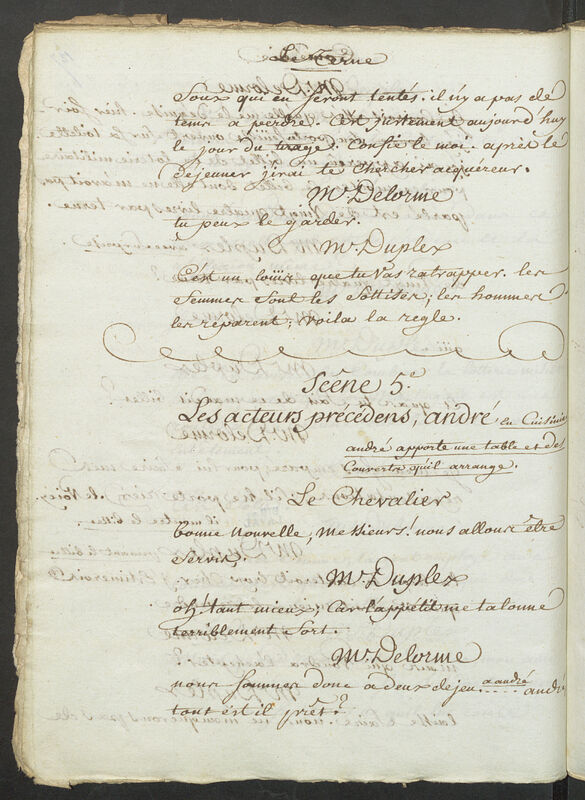 Le Terne
Soux qui en seront tentés. il n'y a pas de
tems a perdre. C'est justement aujourd'huy
le jour du tirage. Confie le moi. après le
dejeuner j'irai le chercher acquéreur.
Mr. Delorme
tu peux le garder.
Mr. Duplex
C'est un loüis que tu vas ratrapper. les
femmes font les sottises; les hommes
les réparent; voila la regle.
Scêne 5e.
Les acteurs précédens, andré en Cuisinier
andré apporte une table et des
Couverts qu'il arrange.
Le Chevalier
bonne nouvelle, messieurs! nous allons être
servis,
Mr. Duplex
oh! tant mieux; car l'appétit me talonne
terriblement fort.
Mr. Delorme
nous sommes donc a deux de jeu .... a andré andré
tout est il prêt?